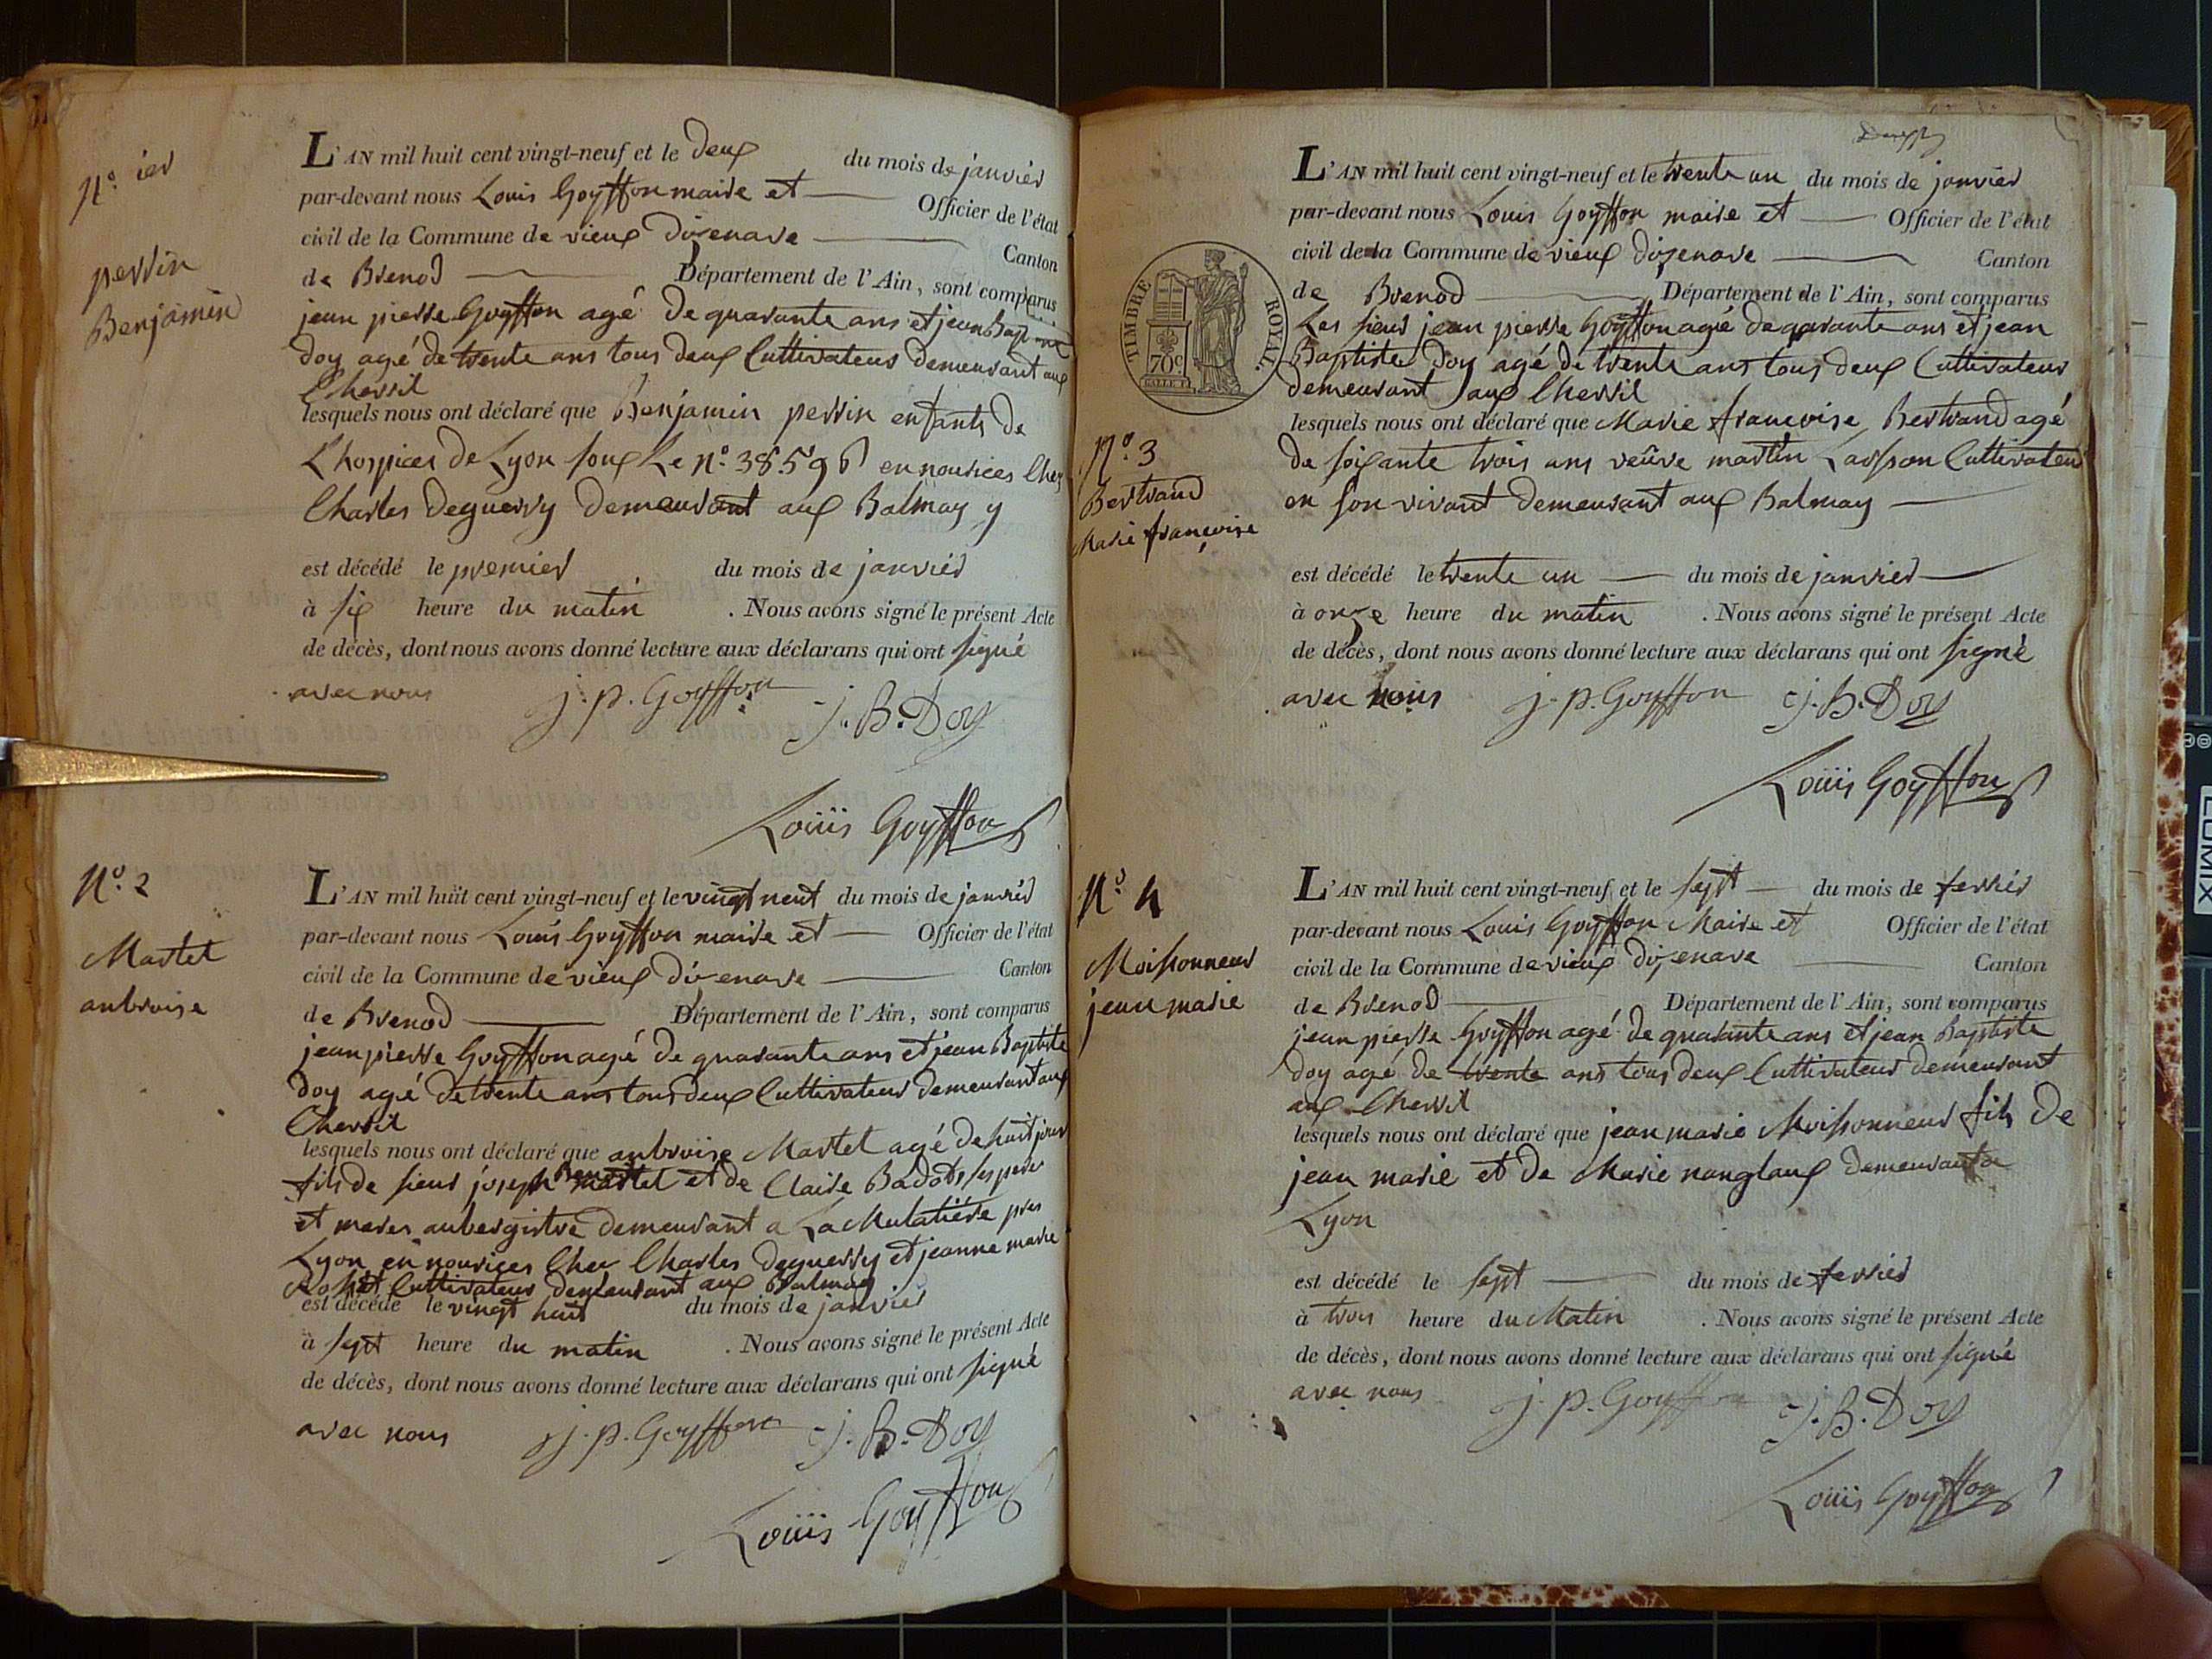 N.º ier
perrin
Benjamin
L'AN mil huit cent vingt-neuf et le deux du mois de janvier
par-devant nous Louis Goyffon maire et Officier de l'état
civil de la Commune de vieux dizenave Canton
de Brenod Département de l'Ain, sont comparus
jean pierre Goyffon agé de quarante ans et jean Baptiste
doy agé de trente ans tous deux Cultivateur demeurant aux
Chevril
lesquels nous ont déclaré que Benjamin perrin enfants de
L'hospices de Lyon soux Le nº. 38596 en nourices Chez
Charles Deguerry demeurant aux Balmay y
est décédé le premier du mois de janvier
à six heure du matin . Nous avons signé le présent Acte
de décès, dont nous avons donné lecture aux déclarans qui ont signé
avec nous j. p. Goyffon j. B. Doy
Louis Goyffon
N.º 2
Martel
anbroise
L'AN mil huit cent vingt-neuf et le vingt neuf du mois de janvier
par-devant nous Louis Goyffon maire et Officier de l'état
civil de la Commune de vieux dizenave Canton
de Brenod Département de l'Ain, sont comparus
jean pierre Goyffon agé de quarante ans et jean Baptiste
doy agé de trente ans tous deux Cultivateur demeurant aux
Chevril
lesquels nous ont déclaré que anbroise Martel agé de huit jour
fils de sieur joseph Benoit martel et de Claire Badots ses pere
et meres aubergistre demeurant a La Mulatière pres
Lyon en nourices Chez Charles deguerry et jeanne marie
Cultivateur demeurant aux Balmay
est décédé le vingt huit du mois de janvier
à sept heure du matin . Nous avons signé le présent Acte
de décès, dont nous avons donné lecture aux déclarans qui ont signé
avec nous j. p. Goyffon j. B. Doy
Louis Goyffon
L'AN mil huit cent vingt-neuf et le trente un du mois de janvier
par-devant nous Louis Goyffon maire et Officier de l'état
civil de la Commune de vieux dizenave Canton
de Brenod Département de l'Ain, sont comparus
TIMBRE ROYAL.
70c
Les sieur jean pierre Goyffon agé de qarante ans et jean
Baptiste Doy agé de trente ans tous deux Cultivateur
demeurant aux Chevril
N.º 3
Bertrand
Marie françoise
lesquels nous ont déclaré que Marie françoise Bertrand agé
de soixante trois ans veûve martin Lasson Cultivateur
en son vivant demeurant aux Balmay
est décédé le trente un du mois de janvier
à onze heure du matin . Nous avons signé le présent Acte
de décès, dont nous avons donné lecture aux déclarans qui ont signé
avec nous j. p. Goyffon j. B. Doy
Louis Goyffon
N.º 4
Moissonneur
jean marie
L'AN mil huit cent vingt-neuf et le sept du mois de fevrier
par-devant nous Louis Goyffon Maire et Officier de l'état
civil de la Commune de vieux dizenave Canton
de Brenod Département de l'Ain, sont comparus
jean pierre Goyffon agé de quarante ans et jean Baptiste
doy agé de trente ans tous deux Cultivateur demeurant
aux Chevril
lesquels nous ont déclaré que jean marie Moissonneur fils de
jean marie et de Marie nanglaux demeurant a
Lyon
est décédé le sept du mois de fevrier
à trois heure du Matin . Nous avons signé le présent Acte
de décès, dont nous avons donné lecture aux déclarans qui ont signé
avec nous j. p. Goyffon j. B. Doy
Louis Goyffon
LUMIX